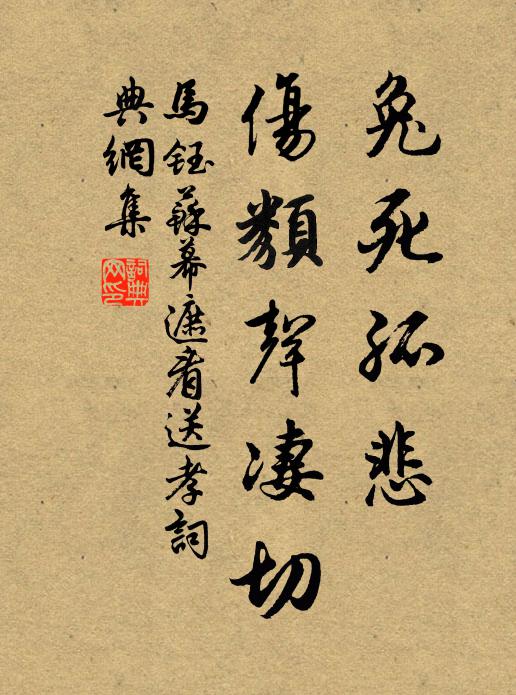 兔死孤悲
傷類聲淒切
馬鈺蘇幕遮看送孝詞
典網集
詞典
网印